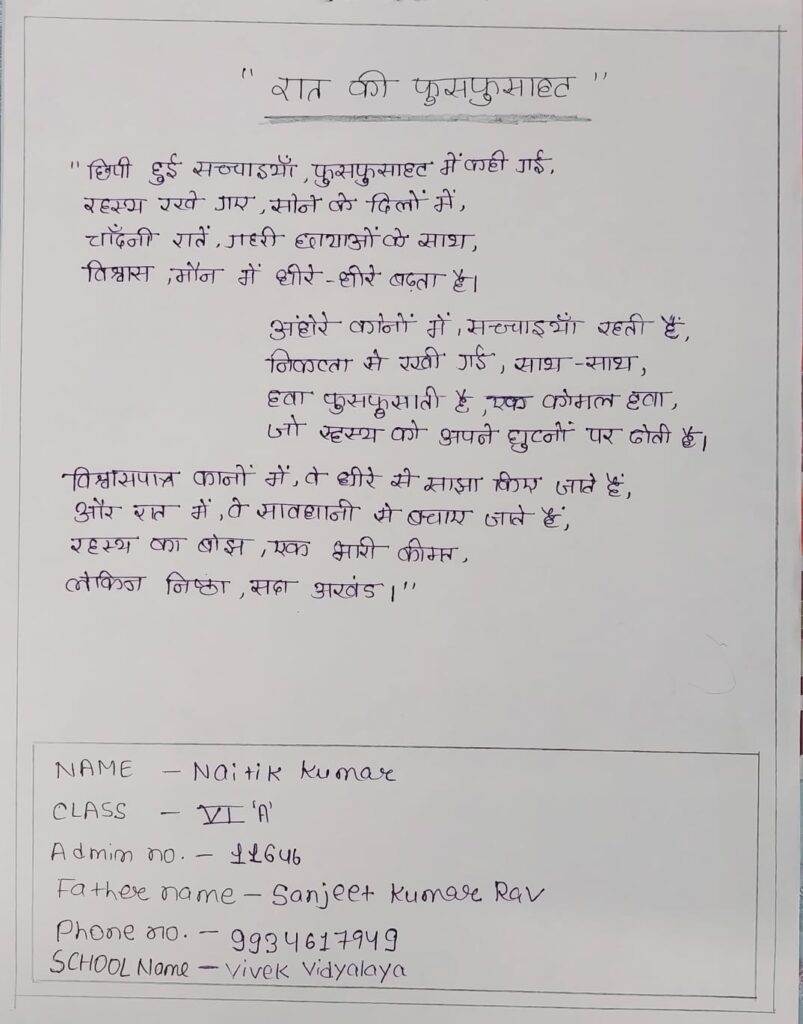 " रात की फुसफुसाहट "
" छिपी हुई सच्चाइयाँ, फुसफुसाहट में कही गई,
रहस्य रखे गए, सोने के दिलों में,
चाँदनी रातें, गहरी छायाओं के साथ,
विश्वास, मौन में धीरे-धीरे बढ़ता है।
अंधेरे कोनों में, सच्चाइयाँ रहती हैं,
निकटता से रखी गई, साथ-साथ,
हवा फुसफुसाती है, एक कोमल हवा,
जो रहस्य को अपने घुटनों पर ढोती है।
विश्वासपात्र कानों में, वे धीरे से साझा किए जाते हैं,
और रात में, वे सावधानी से बचाए जाते हैं,
रहस्य का बोझ, एक भारी कीमत,
लेकिन निष्ठा, सदा अखंड।"
NAME - Naitik Kumar
CLASS - VI 'A'
Admin no. - 11646
Father name - Sanjeet Kumar Rav
Phone no. - 9934617949
SCHOOL Name - Vivek Vidyalaya